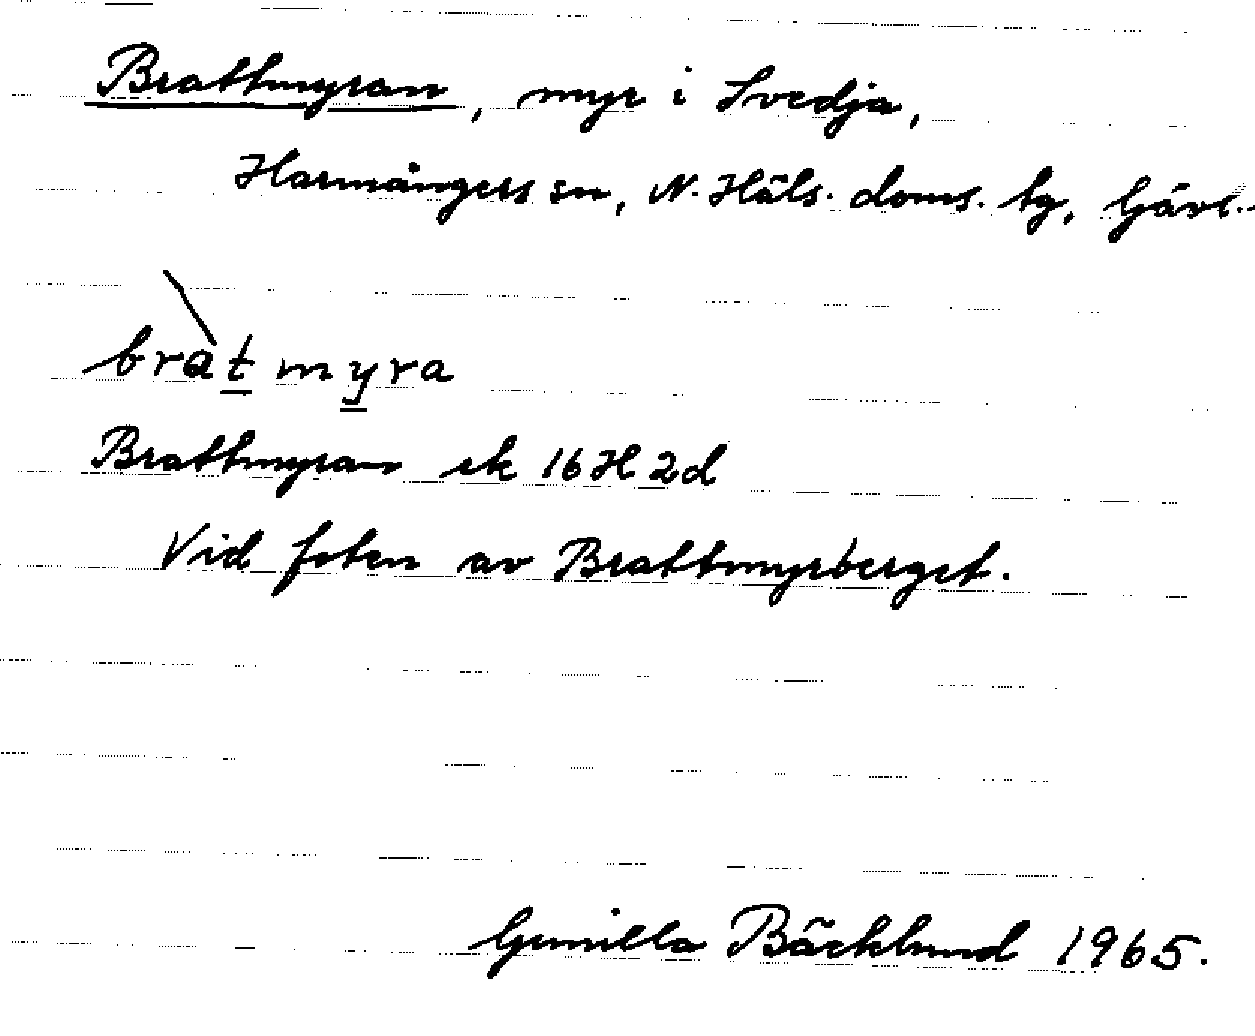 Brattmyran, myr i Svedja,
Harmångers sn, N. Häls. doms. tg, Gävl.
bràt myra
Brattmyran ek 16H 2d
Vid foten av Brattmyrberget.
Gunilla Bäcklund 1965.